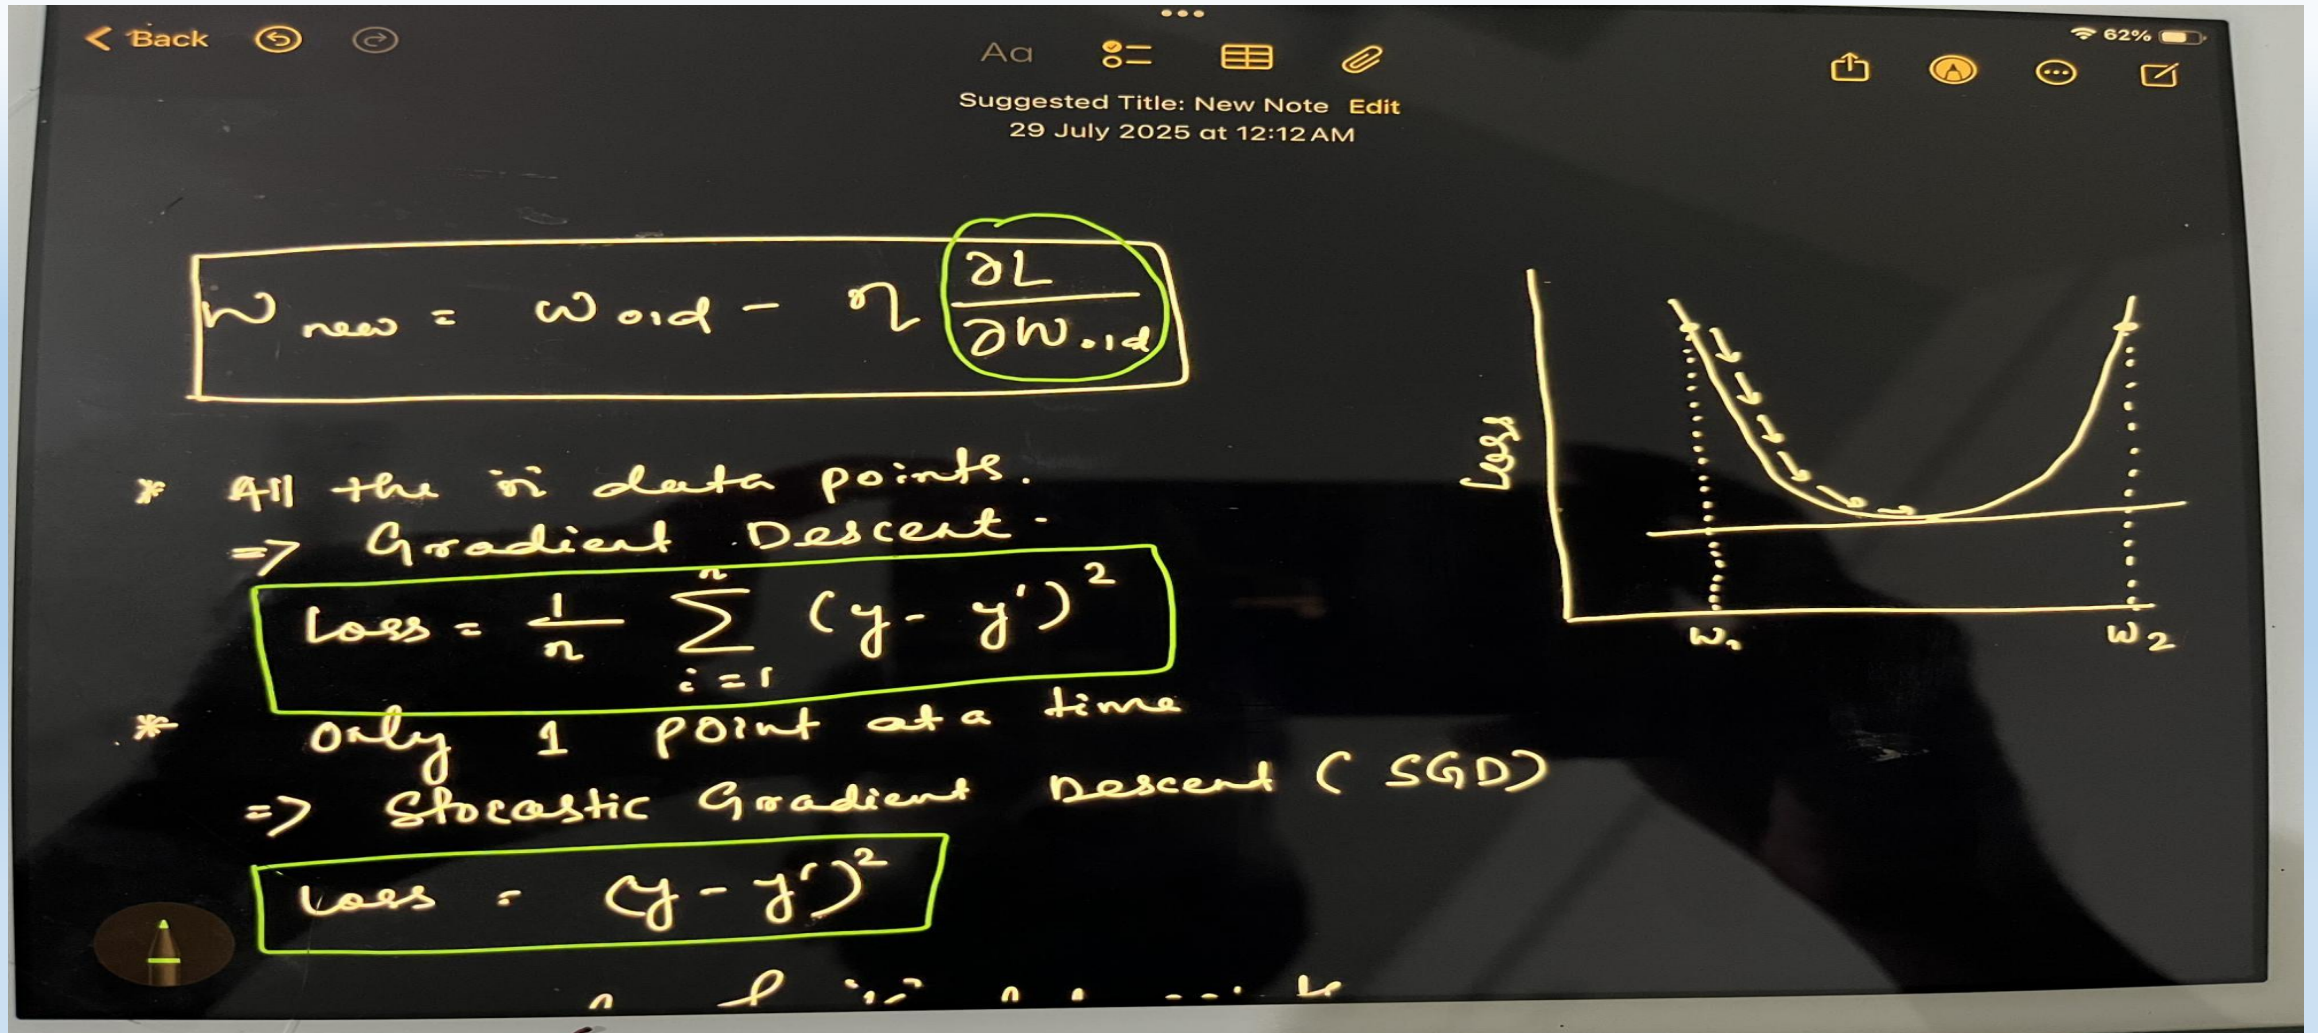 Back
62%
Aa
Suggested Title: New Note Edit
29 July 2025 at 12:12 AM
W new = W old - η ∂L / ∂W old
* All the 'n' data points.
=> Gradient Descent.
Loss = 1/n Σ n i=1 (y - y')²
* Only 1 point at a time
=> Stocastic Gradient Descent (SGD)
Loss = (y - y')²
Loss
W₁
W₂